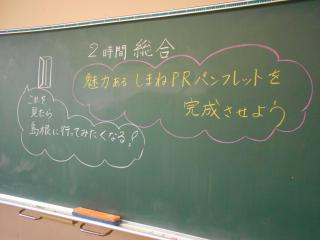 2時間 総合
魅力ある しまねPRパンフレットを
完成させよう
これを
見たら
島根に行ってみたくなる!